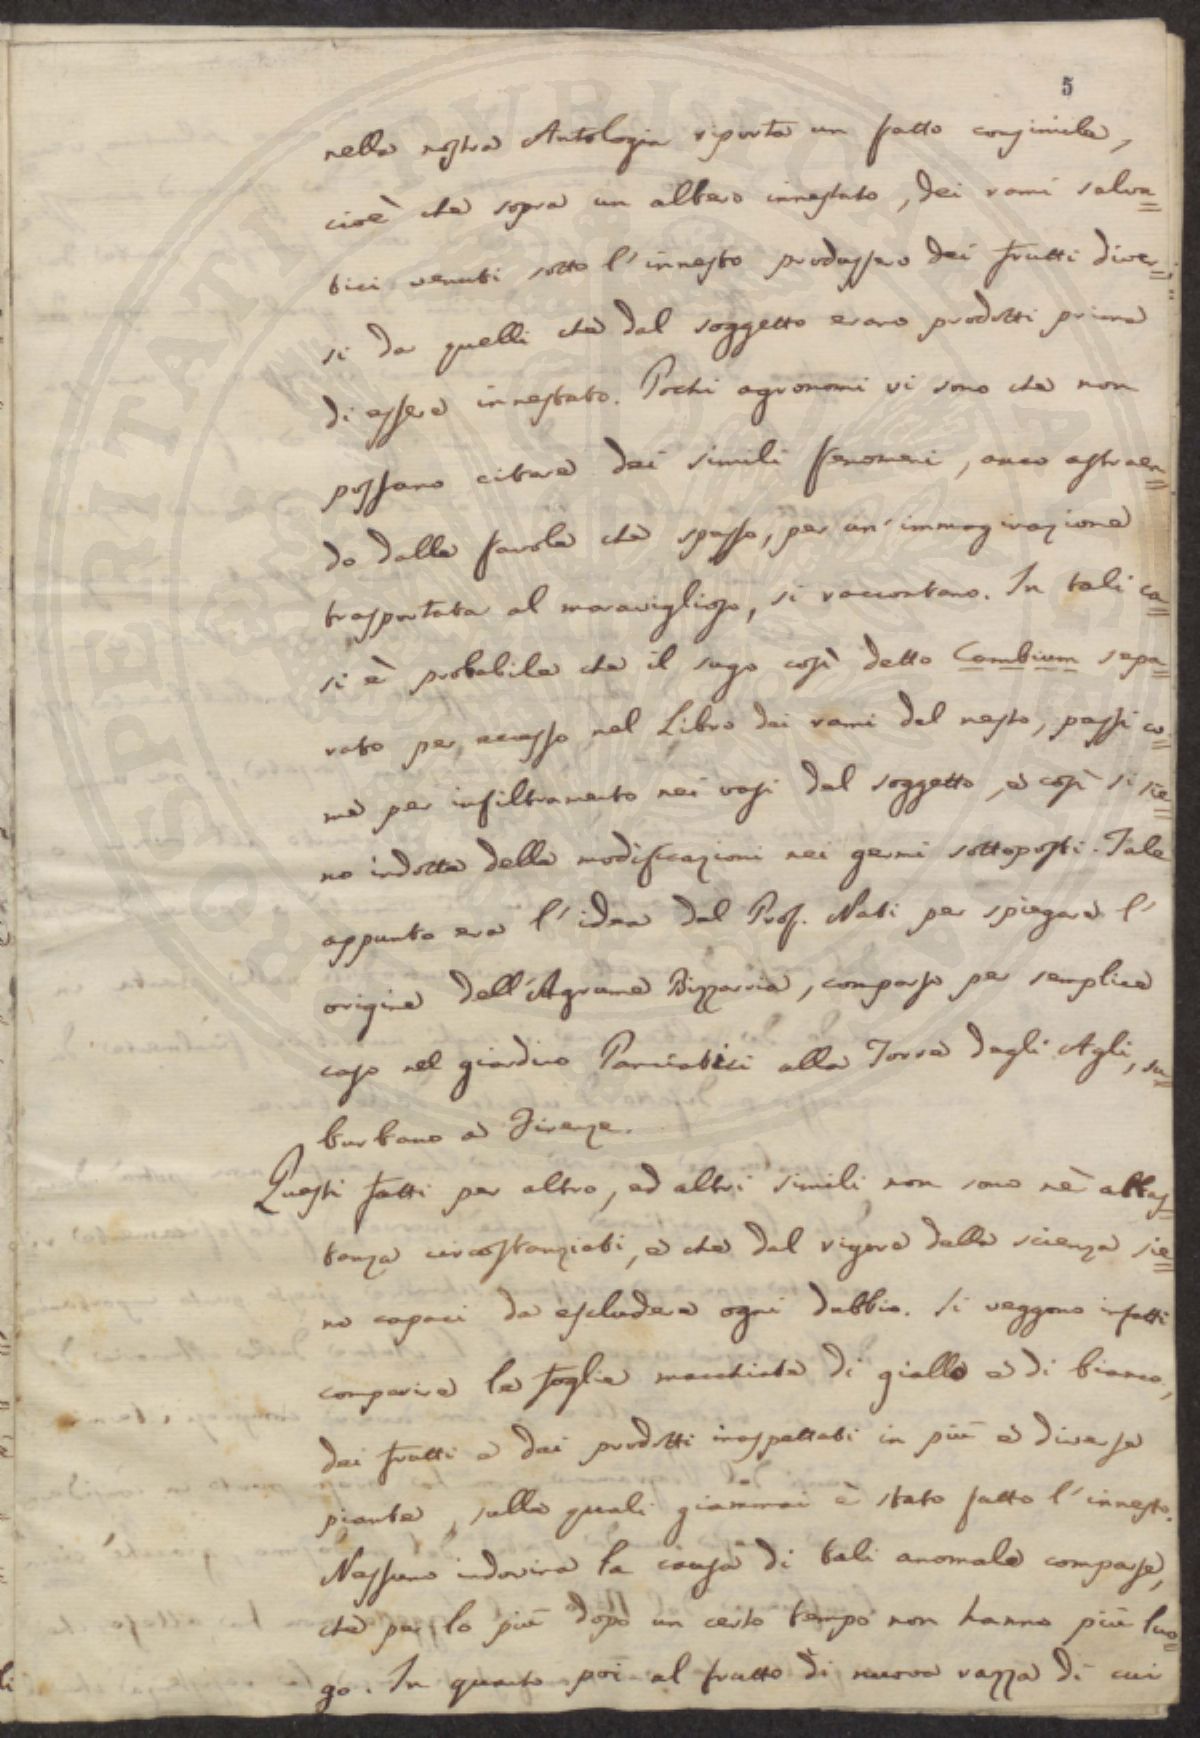 5
nella nostra Antologia riporta un fatto consimile,
cioè che sopra un albero innestato, dei rami salva=
tici venuti sotto l'innesto prodassero dei frutti diver=
si da quelli che dal soggetto erano prodotti prima
di essere innestato. Pochi agronomi vi sono che non
possano citare dei simili fenomeni, anco astraen=
do dalle favole che spesso, per un'immaginazione
trasportata al maraviglioso, si raccontano. In tali ca=
si è probabile che il sugo così detto Cambium sepa=
rato per eccesso nel Libro dei rami del nesto, passi co=
me per infiltramento nei vasi del soggetto, e così si sie=
no indotte delle modificazioni nei germi sottoposti. Tale
appunto era l'idea del Prof. Nati per spiegare l'
origine dell'Agrume Bizzarria, comparso per semplice
caso nel giardino Panciatici alla Torre degli Agli, su=
burbano a Firenze.
Questi fatti per altro, ed altri simili non sono nè abbas=
tanza circostanziati, e che dal rigore della scienza sie=
no capaci da escludere ogni dubbio. Si veggono infatti
comparire le foglie macchiate di giallo e di bianco,
dei frutti e dei prodotti inaspettati in più e diverse
piante, sulle quali giammai è stato fatto l'innesto.
Nessuno indovina la causa di tali anomale comparse,
che per lo più dopo un certo tempo non hanno più luo=
go. In quanto poi al frutto di nuova razza di cui